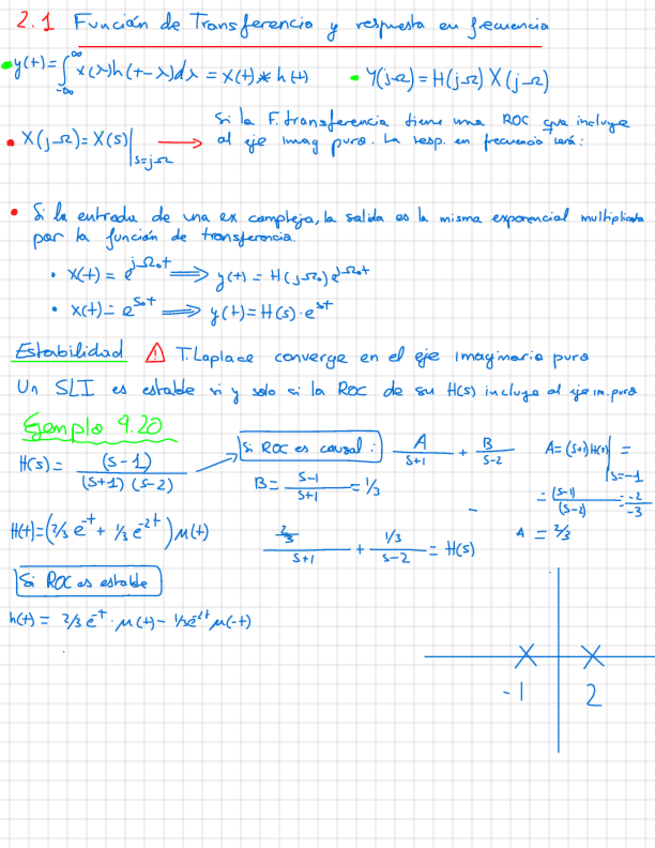 2.1 Función de Transferencia y respuesta en frecuencia
y(t) = ∫_{-∞}^{∞} x(λ)h(t-λ)dλ = x(t) * h(t)
Y(jΩ) = H(jΩ) X(jΩ)
X(jΩ) = X(s)|_{s=jΩ} →
Si la F. transferencia tiene una ROC que incluye
al eje imag puro. La resp. en frecuencia será:
Si la entrada de una ex compleja, la salida es la misma exponencial multiplicada
por la función de transferencia.
x(t) = e^{jΩ₀t} ⟹ y(t) = H(jΩ₀) e^{jΩ₀t}
x(t) = e^{s₀t} ⟹ y(t) = H(s)·e^{st}
Estabilidad ⚠ T. Laplace converge en el eje Imaginario puro
Un SLI es estable si y solo si la ROC de su H(s) incluye al eje im. puro
Ejemplo 9.20
H(s) = (s-1)/((s+1)(s-2))
Si ROC es causal: A/(s+1) + B/(s-2)
A = (s+1)H(s)|_{s=-1} =
= (s-1)/(s-2) = -2/-3
A = 2/3
B = (s-1)/(s+1) = 1/3
H(t) = (2/3 e^{-t} + 1/3 e^{-2t}) μ(t)
(2/3)/(s+1) + (1/3)/(s-2) = H(s)
Si ROC es estable
h(t) = 2/3 e^{-t}·μ(t) - 1/3 e^{2t} μ(-t)
-1 2